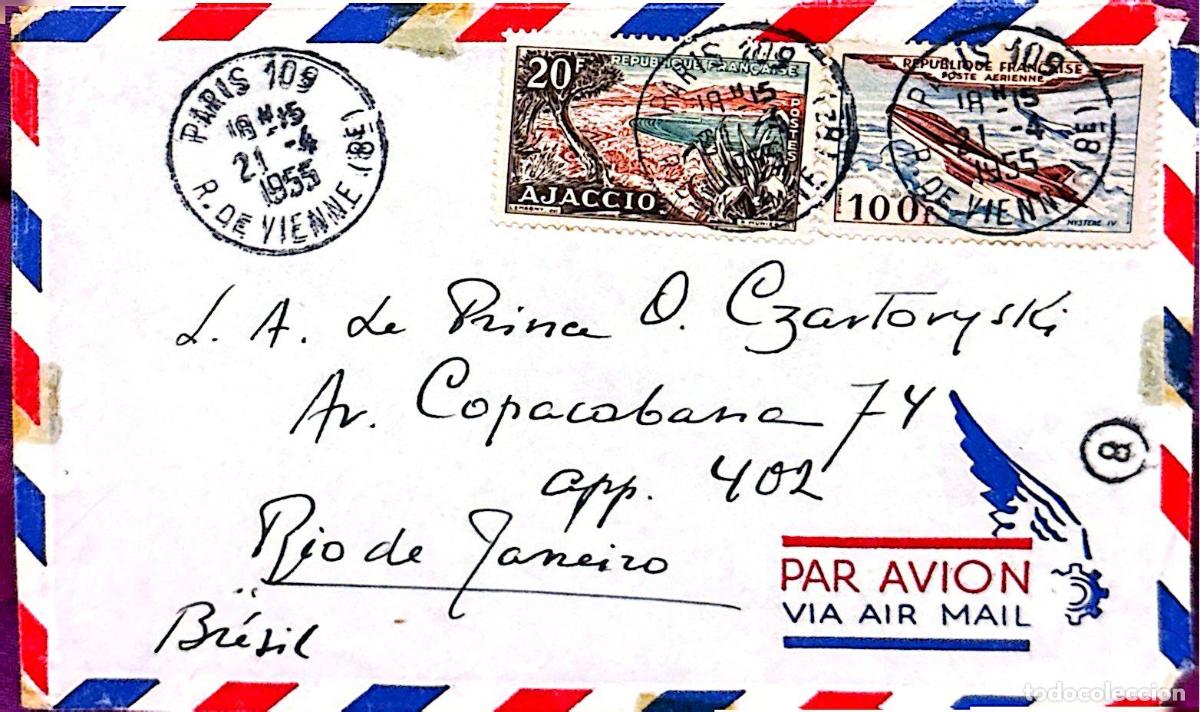 PARIS 109
18H15
21-4
1955
R. DE VIENNE (8E)
20F
REPUBLIQUE FRANÇAISE
POSTES
AJACCIO
PARIS 109
18H15
REPUBLIQUE FRANÇAISE
POSTE AERIENNE
100F
MYSTERE IV
PARIS 109
18H15
21-4
1955
R. DE VIENNE (8E)
L. A. Le Prince O. Czartoryski
Av. Copacabana 74
app. 402
Rio de Janeiro
Brésil
8
PAR AVION
VIA AIR MAIL
todocoleccion